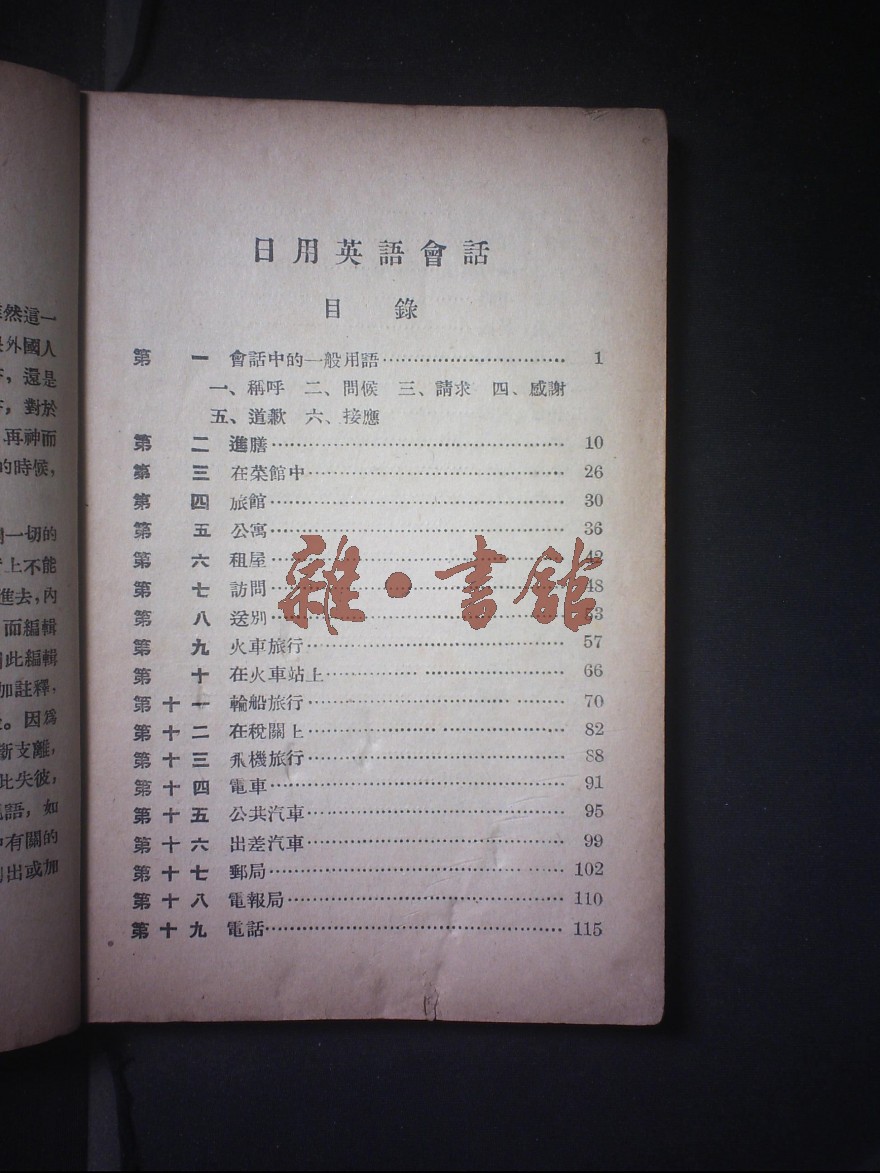 然這一
外國人
，還是
，對於
再神而
的時候，
一切的
上不能
進去，內
而編輯
此編輯
加註釋，
。因爲
支離，
此失彼，
語，如
中有關的
出或加
日用英語會話
目錄
第一 會話中的一般用語…………………………1
一、稱呼 二、問候 三、請求 四、感謝
五、道歉 六、接應
第二 進膳…………………………10
第三 在菜館中…………………………26
第四 旅館…………………………30
第五 公寓…………………………36
第六 租屋…………………………42
第七 訪問…………………………48
第八 送別…………………………53
第九 火車旅行…………………………57
第十 在火車站上…………………………66
第十一 輪船旅行…………………………70
第十二 在稅關上…………………………82
第十三 飛機旅行…………………………88
第十四 電車…………………………91
第十五 公共汽車…………………………95
第十六 出差汽車…………………………99
第十七 郵局…………………………102
第十八 電報局…………………………110
第十九 電話…………………………115
雜·書館